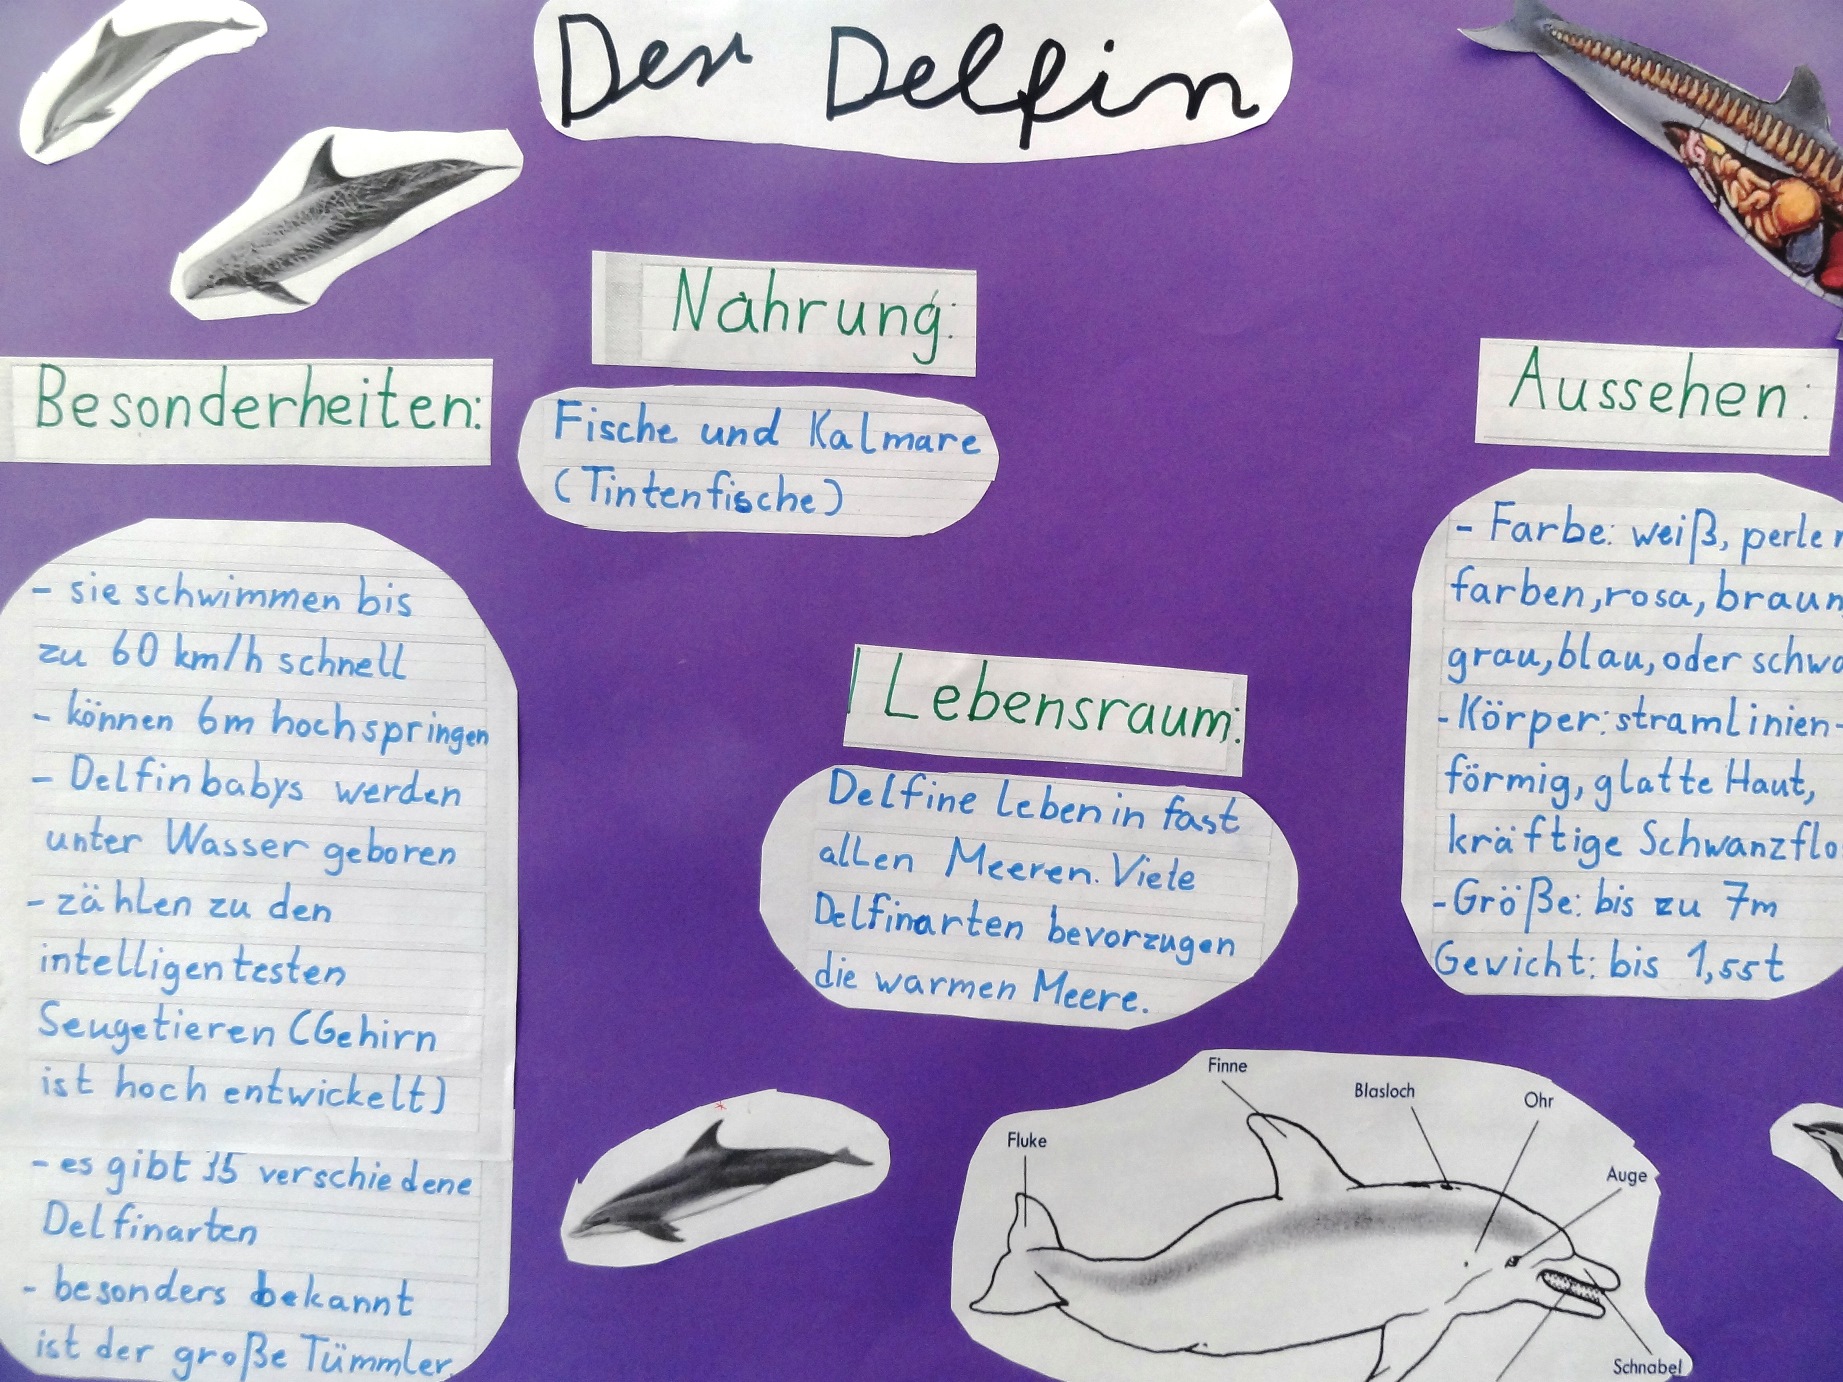 Der Delfin
Nahrung:
Fische und Kalmare
(Tintenfische)
Besonderheiten:
- sie schwimmen bis
zu 60 km/h schnell
- können 6m hochspringen
- Delfinbabys werden
unter Wasser geboren
- zählen zu den
intelligentesten
Seugetieren (Gehirn
ist hoch entwickelt)
- es gibt 35 verschiedene
Delfinarten
- besonders bekannt
ist der große Tümmler
Lebensraum:
Delfine leben in fast
allen Meeren. Viele
Delfinarten bevorzugen
die warmen Meere.
Aussehen:
- Farbe: weiß, perlen
farben, rosa, braun
grau, blau, oder schwa
- Körper: stramlinien-
förmig, glatte Haut,
kräftige Schwanzflo
- Größe: bis zu 7m
Gewicht: bis 1,55t
Finne
Blasloch
Ohr
Fluke
Auge
Schnabel